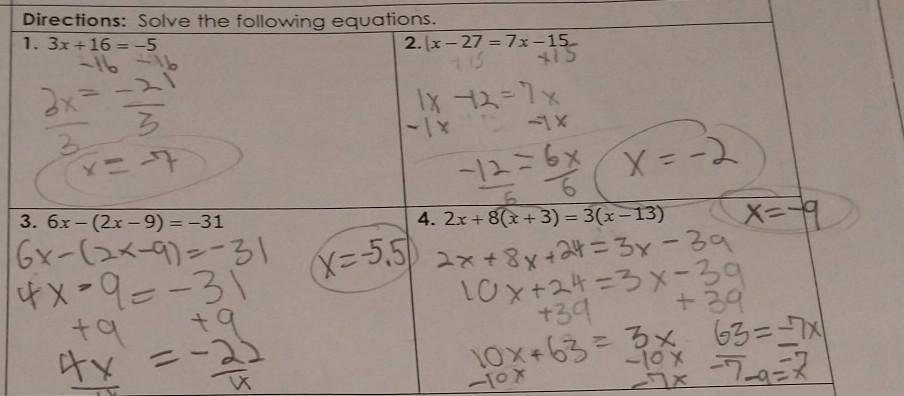 Directions: Solve the following equations.
1. 3x + 16 = -5
-16 -16
3x = -21
3 3
x = -7
2. 1x - 27 = 7x - 15
+15 +15
1x -12 = 7x
-1x -1x
-12 = 6x
6 6
x = -2
3. 6x - (2x - 9) = -31
6x - (2x - 9) = -31
4x - 9 = -31
+9 +9
4x = -22
4
x = -5.5
4. 2x + 8(x + 3) = 3(x - 13)
x = -9
2x + 8x + 24 = 3x - 39
10x + 24 = 3x - 39
+39 +39
10x + 63 = 3x
-10x -10x
-7x
63 = -7x
-7 -7
-9 = x